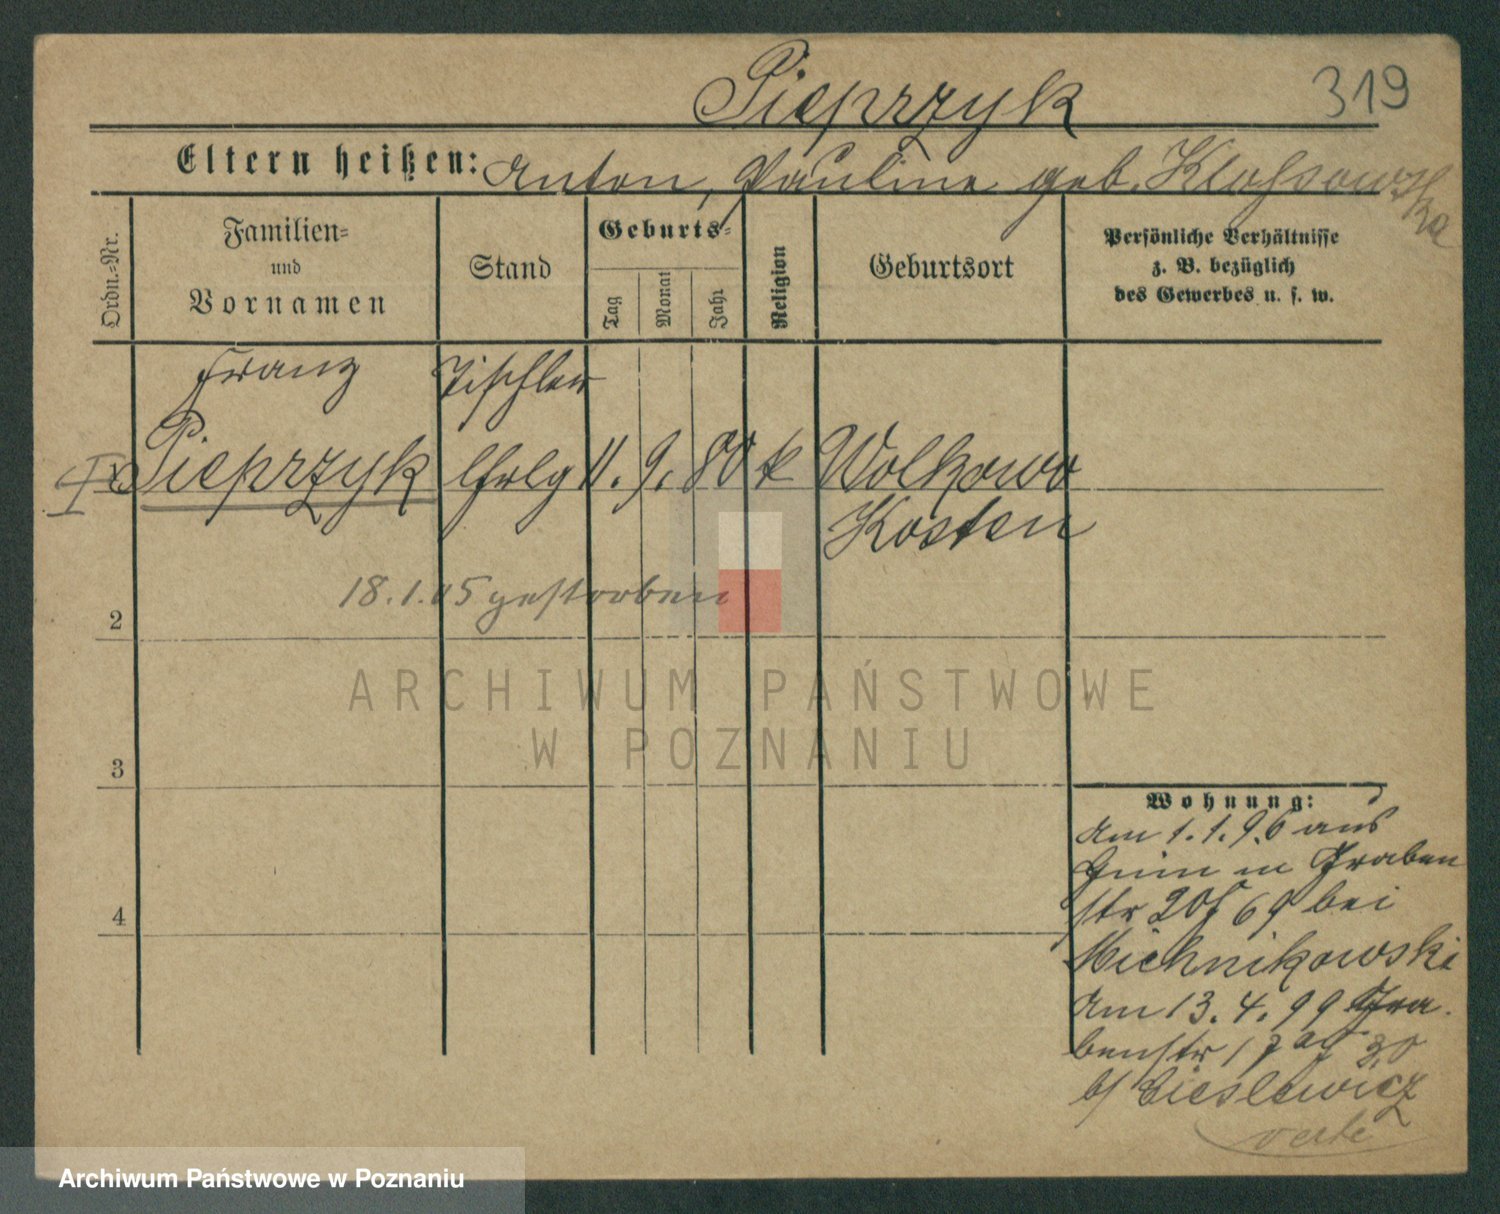 Pieprzyk
319
Eltern heißen: Anton, Pauline geb. Klossowska
Ordn.-Nr.
Familien-
und
Vornamen
Stand
Geburts-
Tag
Monat
Jahr
Religion
Geburtsort
Persönliche Verhältnisse
z. B. bezüglich
des Gewerbes u. s. w.
Franz Tischler
I Pieprzyk lhrlg 11. 9. 80 k Wolkowo
Kosten
18.1.05 gestorben
2
ARCHIWUM PAŃSTWOWE
W POZNANIU
3
Wohnung:
Am 1.1.96 aus
in Graben
str 20 bei
Michnikowski
Am 13.4.99 Gra-
benstr
b/ Cieslewicz
verte
4
Archiwum Państwowe w Poznaniu